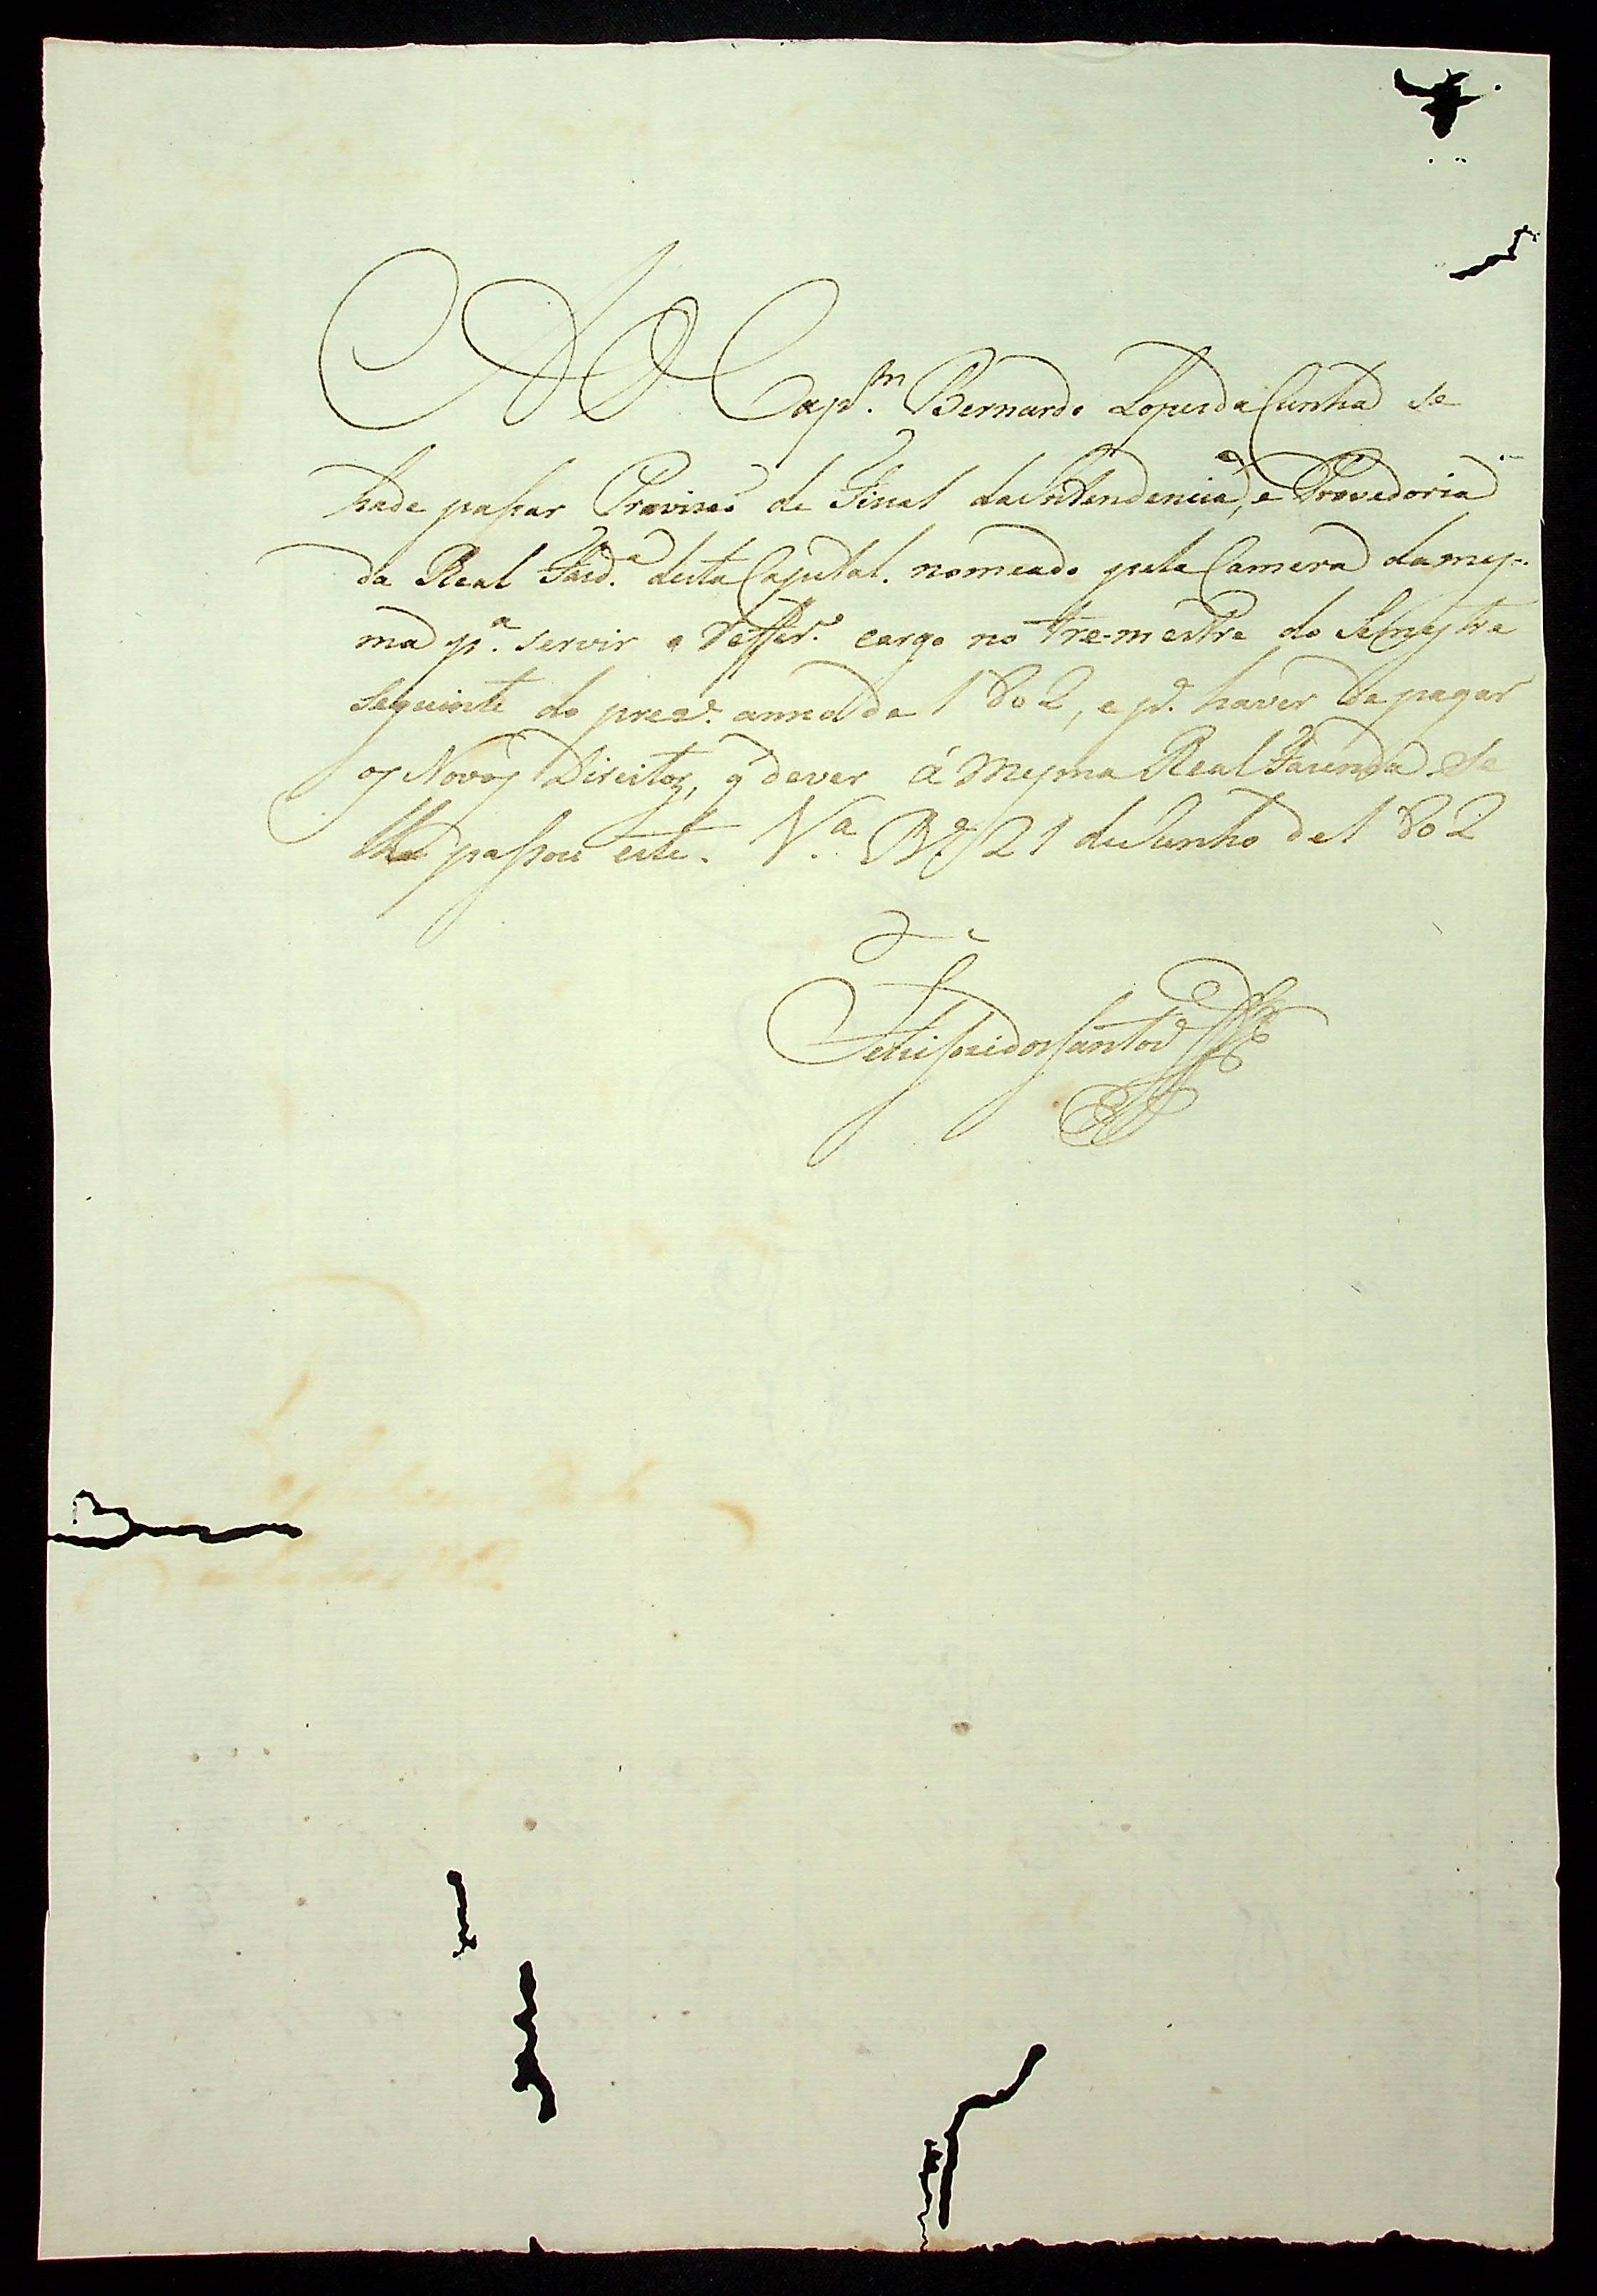 Ao Cap.m Bernardo Lopes da Cunha se
hade passar Provisaõ de Fiscal da Intendencia, e Provedoria
da Real Fazd.a desta Capital. nomeado pela Camera da mes-
ma p.a servir o reffer.o cargo no tre-mestre do Semestre
seguinte do prez.e anno de 1802, e p.a haver de pagar
os Novos Direitos, q dever á mesma Real Fazenda se
lhe passou este. V.a B.a 21 de Junho de 1802